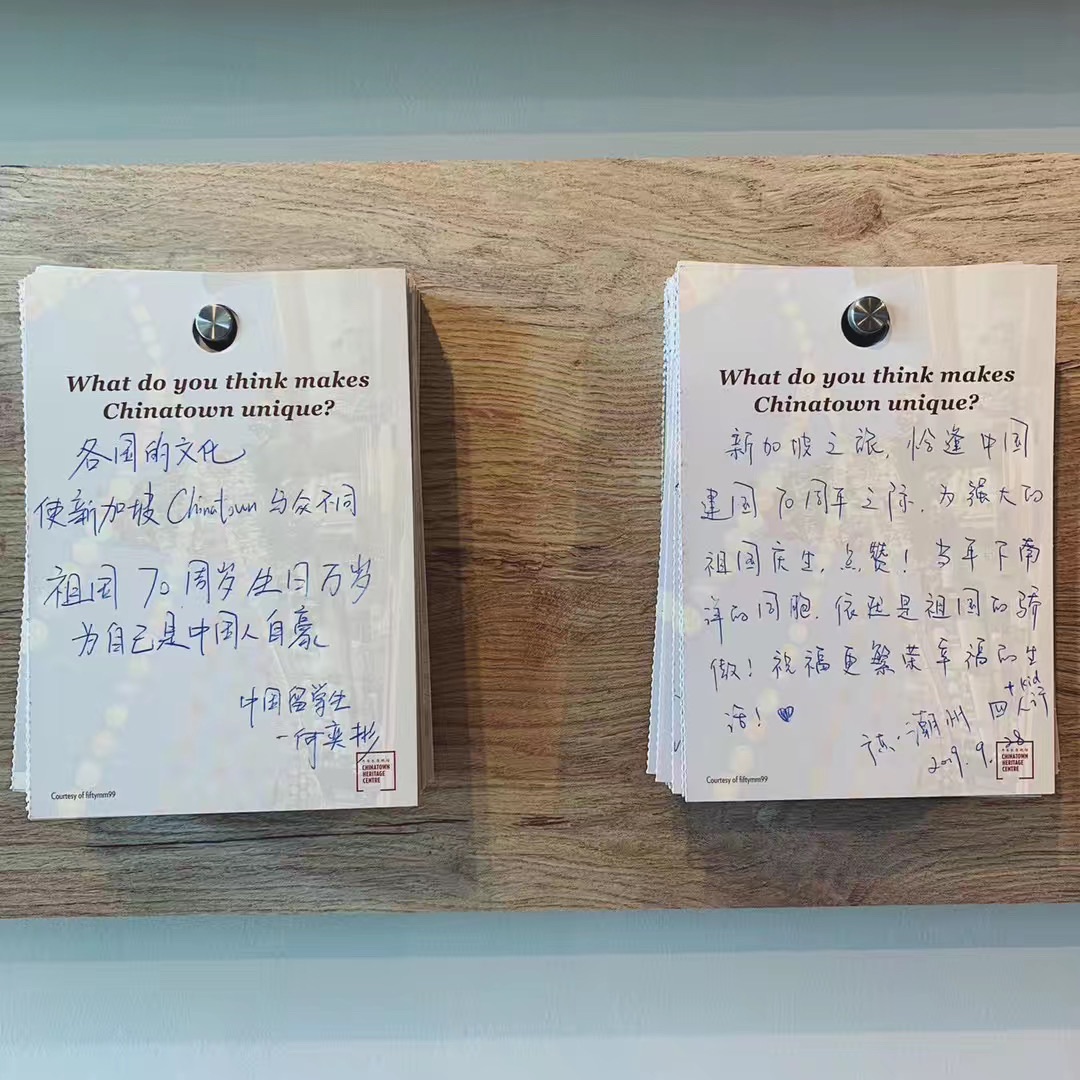 What do you think makes
Chinatown unique?
各国的文化
使新加坡 Chinatown 与众不同
祖国 70 周岁生日万岁
为自己是中国人自豪
中国留学生
—何奕彬
CHINATOWN
HERITAGE
CENTRE
Courtesy of fiftymm99
What do you think makes
Chinatown unique?
新加坡之旅，恰逢中国
建国70周年之际，为强大的
祖国庆生，点赞！当年下南
洋的同胞，依然是祖国的骄
傲！祝福更繁荣幸福的生
活！
+ kid
潮州 四人行
2019.9.28
CHINATOWN
HERITAGE
CENTRE
Courtesy of fiftymm99